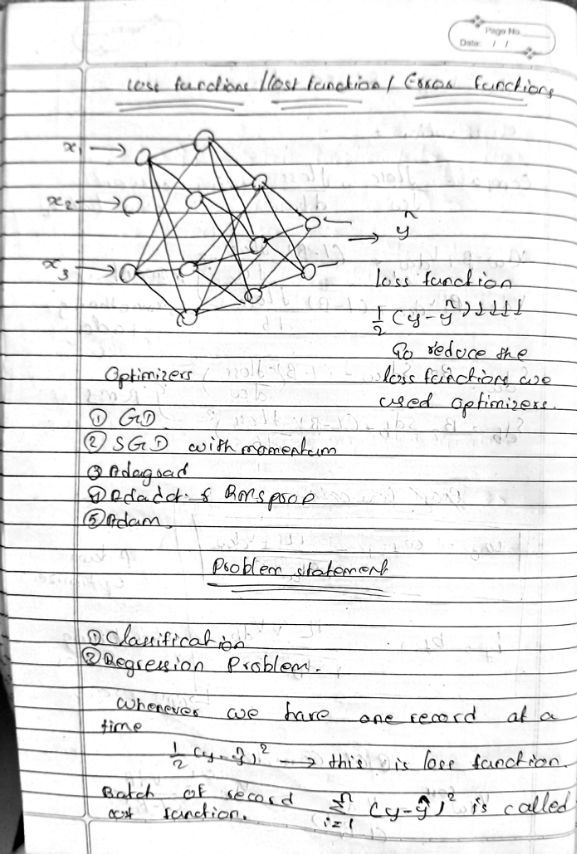 Page No.
Date: / /
Loss functions / Cost function / Error functions
x₁ →
x₂ →
x₃ →
→ ŷ
loss function
1/2 (y - ŷ) ↓↓↓↓
To reduce the
Optimizers loss functions we
used optimizers.
① GD
② SGD with momentum
③ Adagrad
④ Adadelt & RMSprop
⑤ Adam.
Problem statement
① Classification
② Regression Problem.
whenever we have one record at a
time
1/2 (y - ŷ)² → this is loss function.
Batch of record n Σ i=1 (y - ŷ)² is called
cost function.